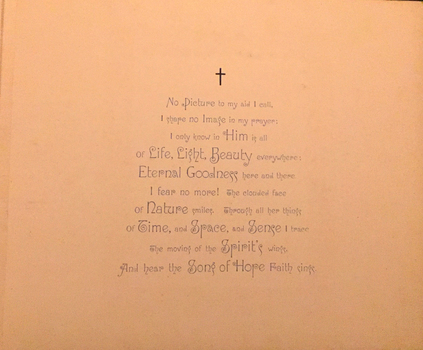 No Picture to my aid I call,
I shape no Image in my prayer;
I only know in Him is all
Of Life, Light, Beauty everywhere;
Eternal Goodness here and there
I fear no more! The clouded face
Of Nature smiles. Through all her things
Of Time, and Space, and Sense I trace
The moving of the Spirit's wings,
And hear the Song of Hope Faith sings.